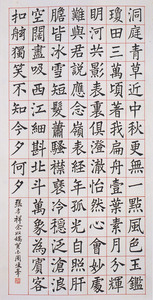 洞庭青草近中秋更無一點風色玉鑑
瓊田三萬頃著我扁舟一葉素月分輝
明河共影表裏俱澄澈怡然心會妙處
難與君說應念嶺表經年孤光自照肝
膽皆冰雪短髮蕭騷襟袖冷穩泛滄浪
空闊盡吸西江細斟北斗萬象為賓客
扣舷獨笑不知今夕何夕 張孝祥